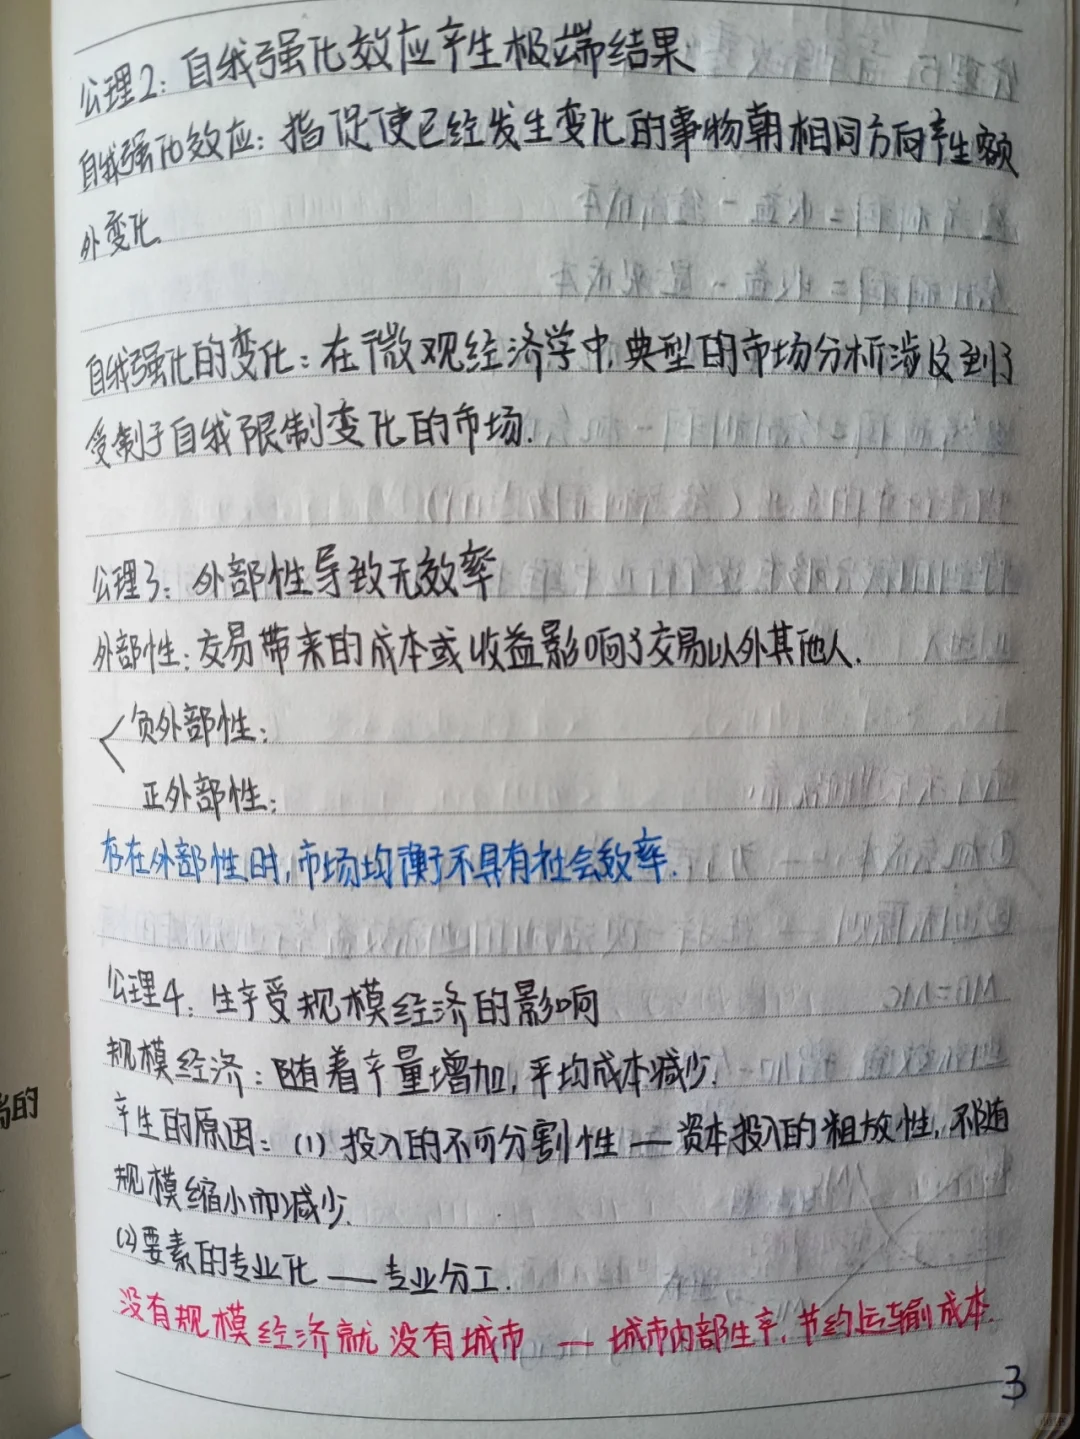 公理2：自我强化效应产生极端结果
自我强化效应：指促使已经发生变化的事物朝相同方向产生额
外变化.
自我强化的变化：在微观经济学中,典型的市场分析涉及到了
受制于自我限制变化的市场.
公理3：外部性导致无效率
外部性：交易带来的成本或收益影响了交易以外其他人.
负外部性：
正外部性：
存在外部性时,市场均衡不具有社会效率.
公理4：生产受规模经济的影响
规模经济：随着产量增加,平均成本减少.
产生的原因：(1) 投入的不可分割性 — 资本投入的粗放性,不随
规模缩小而减少.
(2)要素的专业化 — 专业分工.
没有规模经济就没有城市 — 城市内部生产,节约运输成本.
3
当的